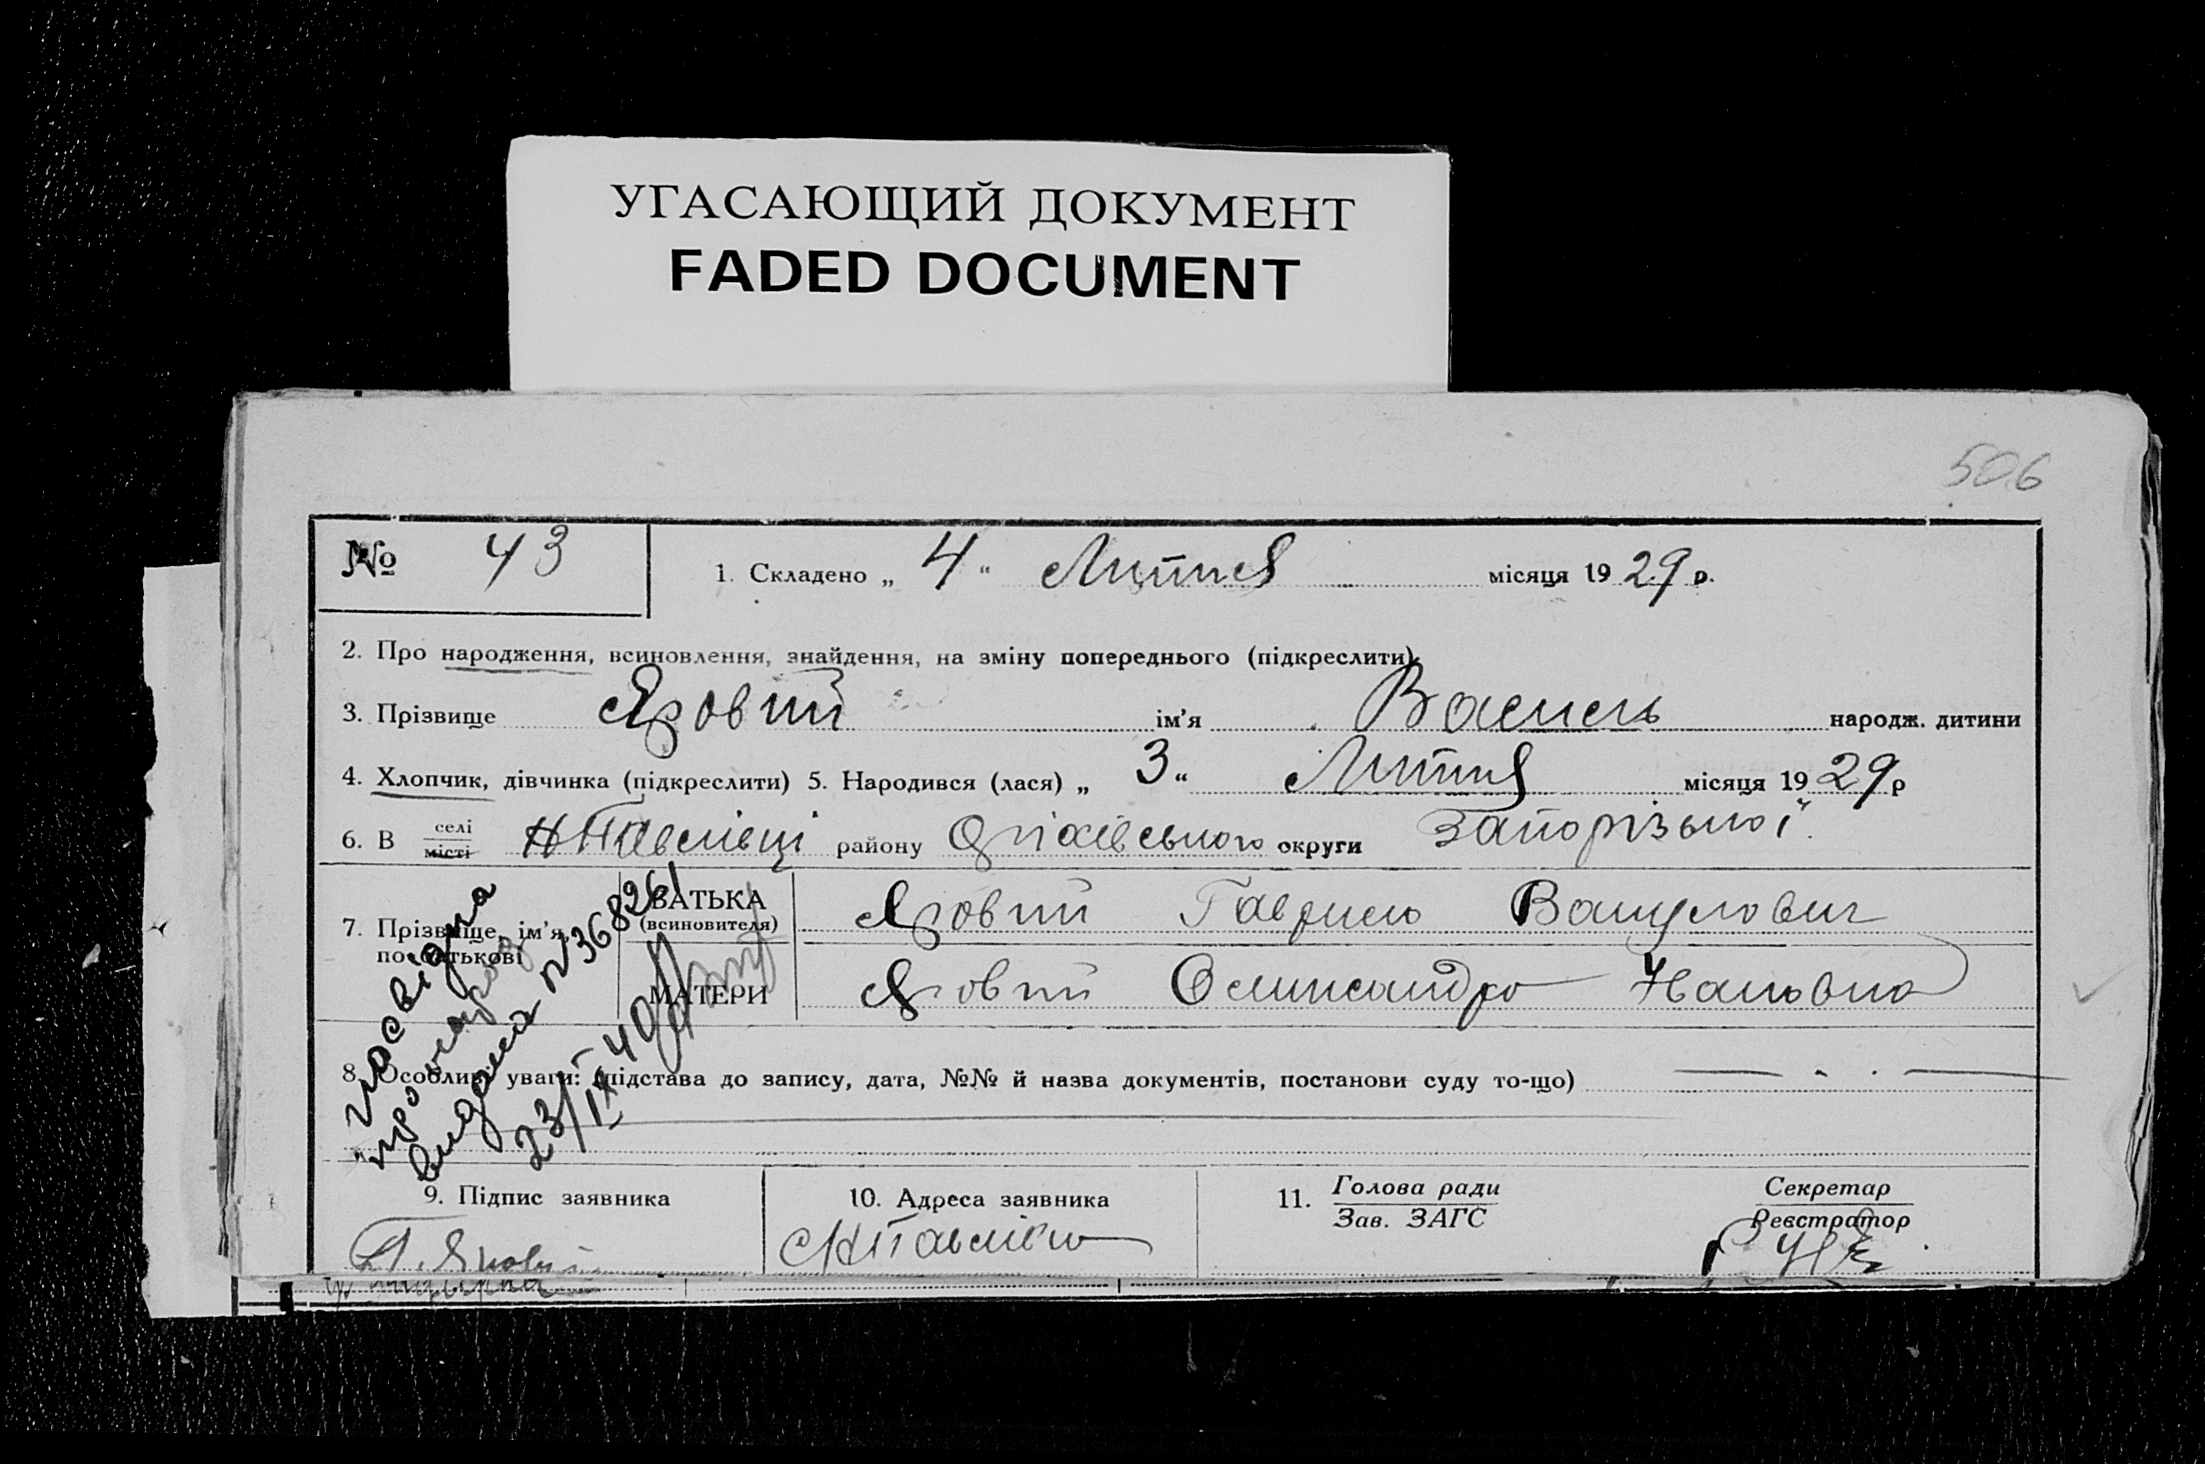 УГАСАЮЩИЙ ДОКУМЕНТ
FADED DOCUMENT
506
№ 43
1. Складено „ 4 “ Лютня місяця 1929 р.
2. Про народження, всиновлення, знайдення, на зміну попереднього (підкреслити)
3. Прізвище Яровий ім’я Василь народж. дитини
4. Хлопчик, дівчинка (підкреслити) 5. Народився (лася) „ 3 “ Лютня місяця 1929 р
6. В селі місті Н Павлівці району Оріхівського округи Запорізької
7. Прізвище, ім’я, по батькові
БАТЬКА (всиновителя) Яровий Гаврило
МАТЕРИ Яровий Олександра Івановна
8. Особливі уваги: (підстава до запису, дата, №№ й назва документів, постанови суду то-що)
посвідка
про народ
видана № 368261
23/IX 40
9. Підпис заявника
10. Адреса заявника
11. Голова ради Зав. ЗАГС
Секретар Реєстратор
Яровий
Н Павлівка